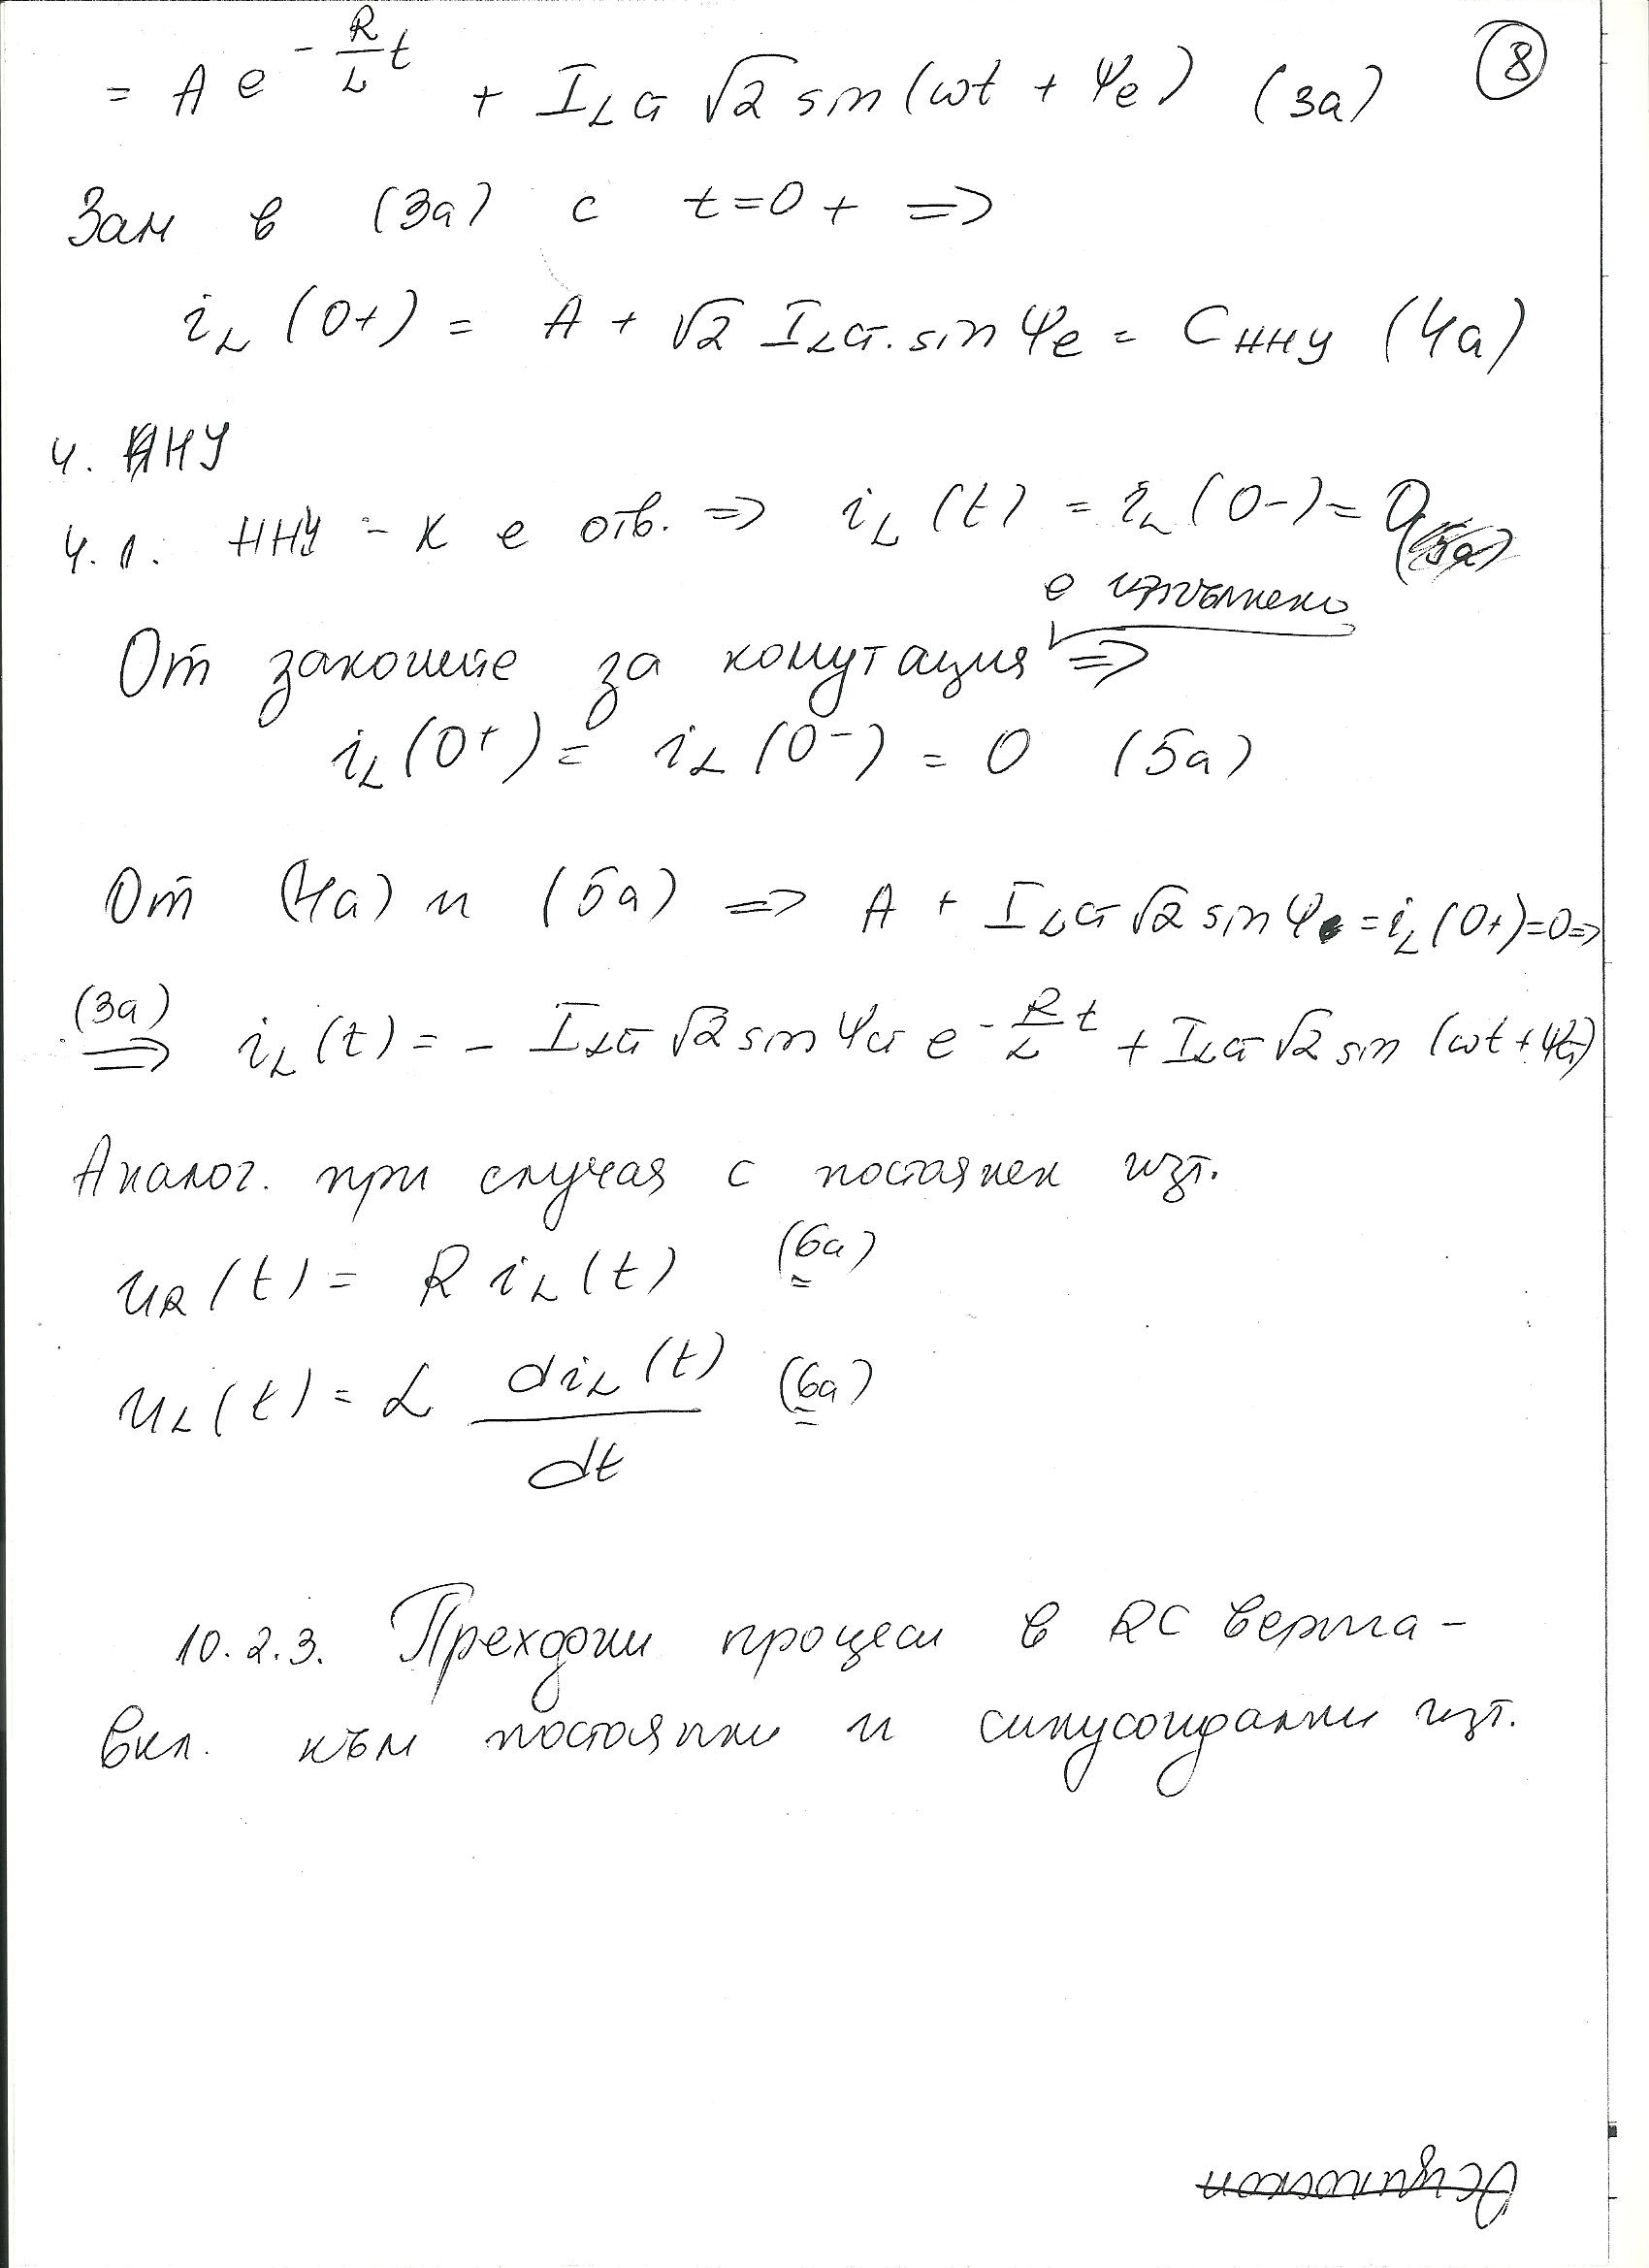 8
= A e^{-\frac{R}{L}t} + I_{Lст} √2 sin(ωt + ψ_e) (3a)
Зам в (3а) с t=0+ =>
i_L (0+) = A + √2 I_{Lст}. sin ψ_e = С_{ННУ} (4a)
4. ННУ
4.1. ННУ - К е отв. => i_L (t) = i_L (0-) = 0
е изпълнено
От законите за комутация =>
i_L (0+) = i_L (0-) = 0 (5a)
От (4а) и (5а) => A + I_{Lст} √2 sin ψ_e = i_L (0+)=0=>
(3a)
=> i_L (t) = - I_{Lст} √2 sin ψ_{ст} e^{-\frac{R}{L}t} + I_{Lст} √2 sin (ωt + ψ_{ст})
Аналог. при случая с постоянен изт.
u_R (t) = R i_L (t) (6a)
u_L (t) = L \frac{di_L (t)}{dt} (6a)
10.2.3. Преходни процеси в RC верига -
вкл. към постоянни и синусоидални изт.